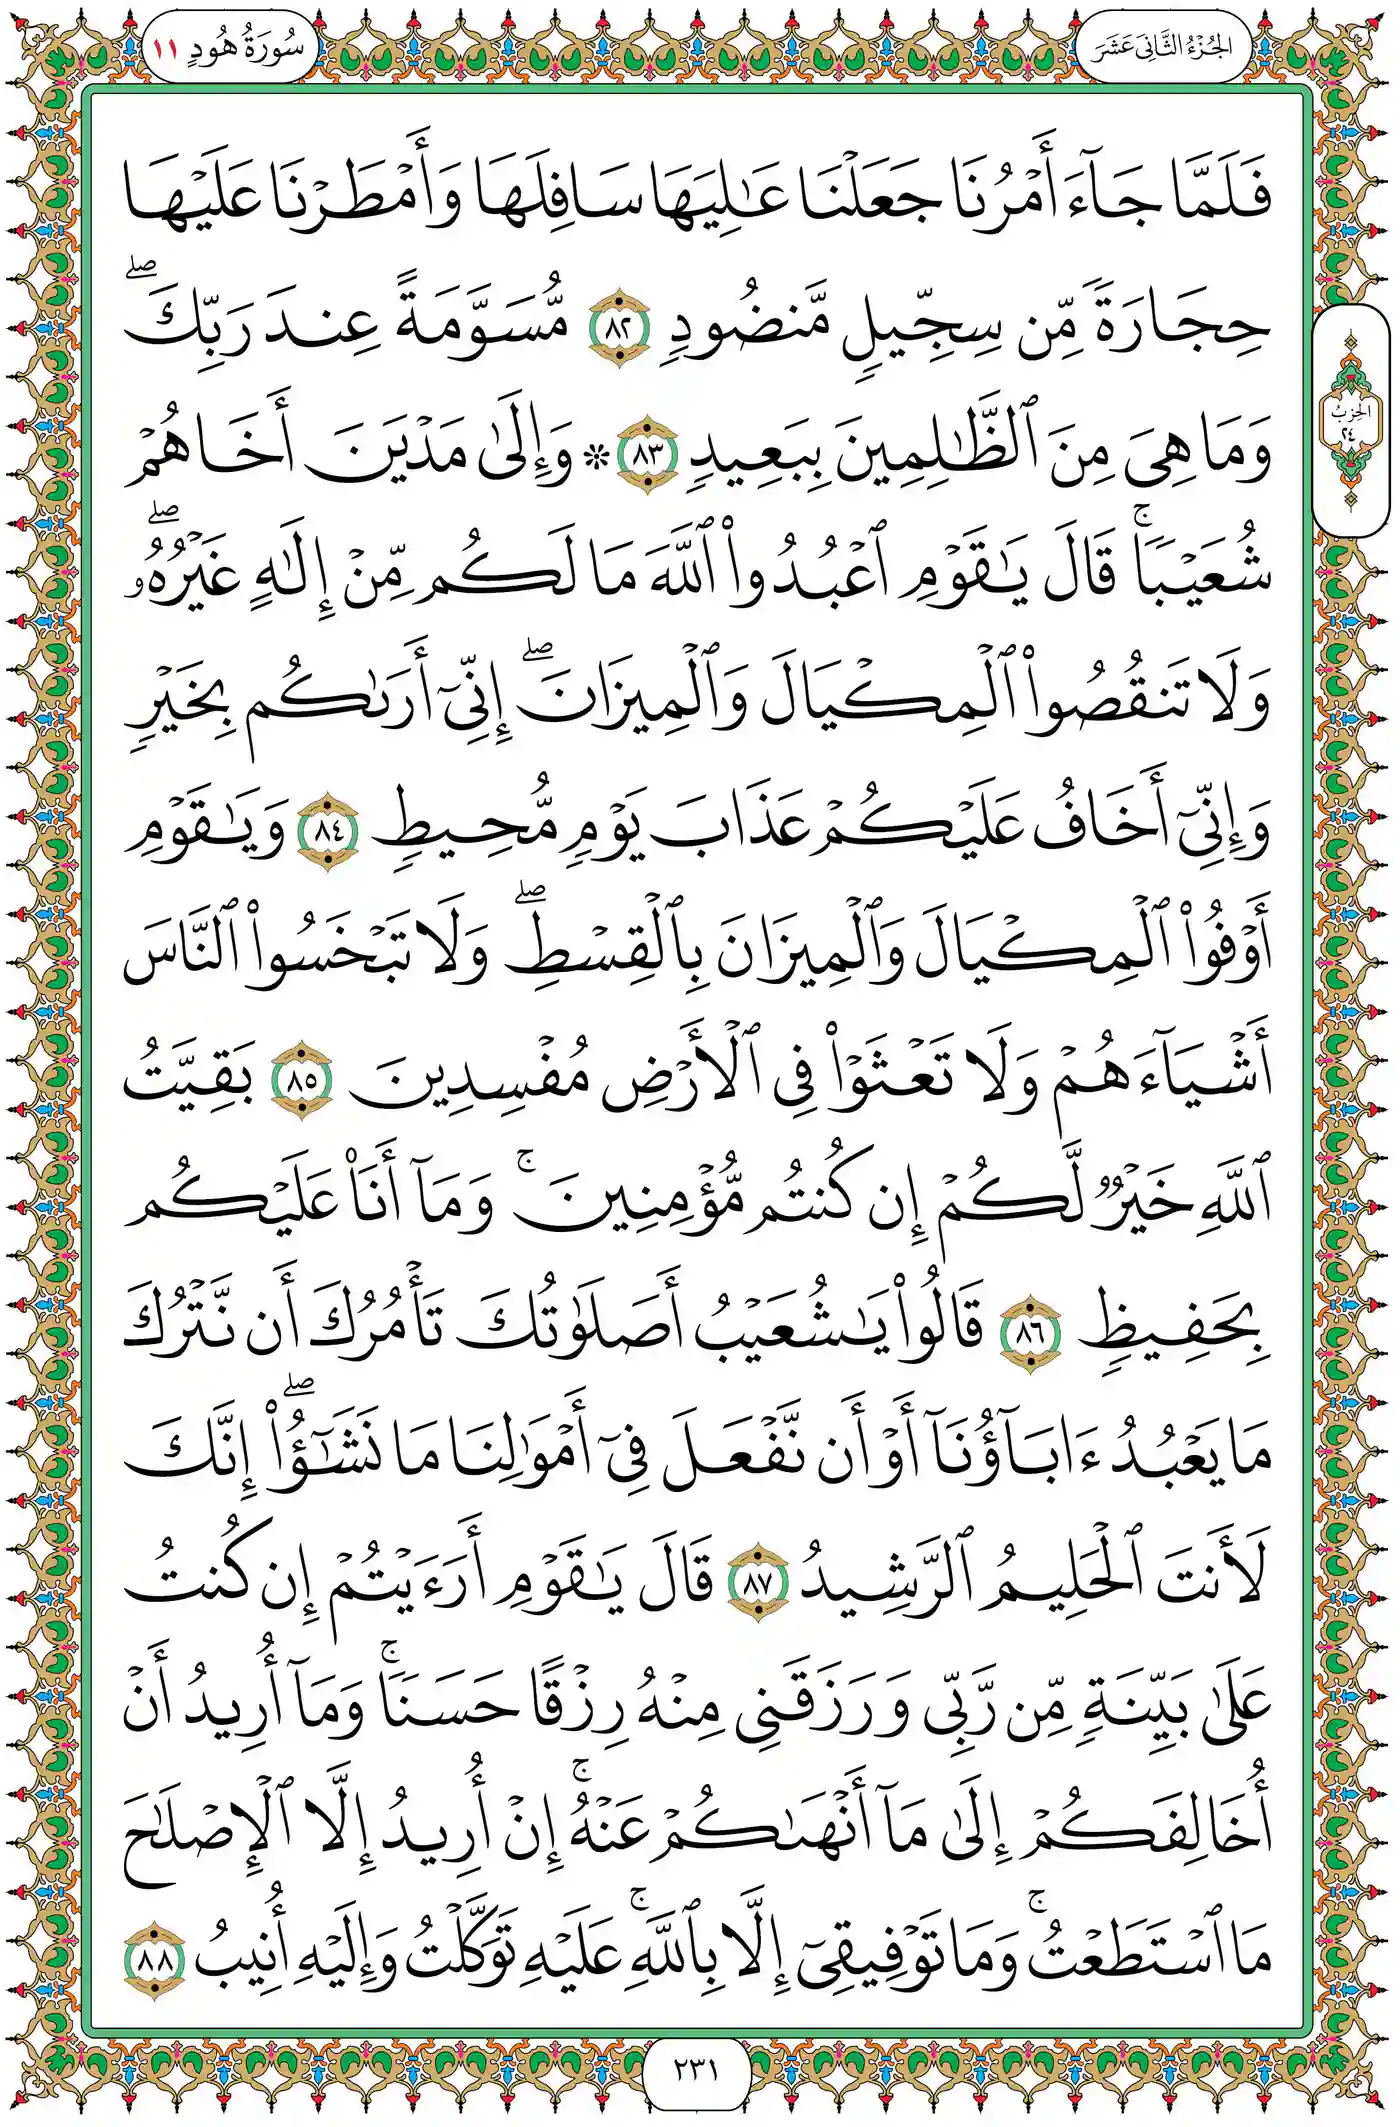 الجُزْءُ الثَّانِي عَشَرَ
سُورَةُ هُودٍ ١١
فَلَمَّا جَآءَ أَمْرُنَا جَعَلْنَا عَٰلِيَهَا سَافِلَهَا وَأَمْطَرْنَا عَلَيْهَا
حِجَارَةً مِّن سِجِّيلٍ مَّنضُودٍ ٨٢ مُّسَوَّمَةً عِندَ رَبِّكَۖ
وَمَا هِيَ مِنَ ٱلظَّٰلِمِينَ بِبَعِيدٍ ٨٣ ۞ وَإِلَىٰ مَدْيَنَ أَخَاهُمْ
شُعَيْبًاۚ قَالَ يَٰقَوْمِ ٱعْبُدُوا۟ ٱللَّهَ مَا لَكُم مِّنْ إِلَٰهٍ غَيْرُهُۥۖ
وَلَا تَنقُصُوا۟ ٱلْمِكْيَالَ وَٱلْمِيزَانَۖ إِنِّىٓ أَرَىٰكُم بِخَيْرٍ
وَإِنِّىٓ أَخَافُ عَلَيْكُمْ عَذَابَ يَوْمٍ مُّحِيطٍ ٨٤ وَيَٰقَوْمِ
أَوْفُوا۟ ٱلْمِكْيَالَ وَٱلْمِيزَانَ بِٱلْقِسْطِۖ وَلَا تَبْخَسُوا۟ ٱلنَّاسَ
أَشْيَآءَهُمْ وَلَا تَعْثَوْا۟ فِى ٱلْأَرْضِ مُفْسِدِينَ ٨٥ بَقِيَّتُ
ٱللَّهِ خَيْرٌ لَّكُمْ إِن كُنتُم مُّؤْمِنِينَۚ وَمَآ أَنَا۠ عَلَيْكُم
بِحَفِيظٍ ٨٦ قَالُوا۟ يَٰشُعَيْبُ أَصَلَوٰتُكَ تَأْمُرُكَ أَن نَّتْرُكَ
مَا يَعْبُدُ ءَابَآؤُنَآ أَوْ أَن نَّفْعَلَ فِىٓ أَمْوَٰلِنَا مَا نَشَٰٓؤُا۟ۖ إِنَّكَ
لَأَنتَ ٱلْحَلِيمُ ٱلرَّشِيدُ ٨٧ قَالَ يَٰقَوْمِ أَرَءَيْتُمْ إِن كُنتُ
عَلَىٰ بَيِّنَةٍ مِّن رَّبِّى وَرَزَقَنِى مِنْهُ رِزْقًا حَسَنًاۚ وَمَآ أُرِيدُ أَنْ
أُخَالِفَكُمْ إِلَىٰ مَآ أَنْهَىٰكُمْ عَنْهُۚ إِنْ أُرِيدُ إِلَّا ٱلْإِصْلَٰحَ
مَا ٱسْتَطَعْتُۚ وَمَا تَوْفِيقِىٓ إِلَّا بِٱللَّهِۚ عَلَيْهِ تَوَكَّلْتُ وَإِلَيْهِ أُنِيبُ ٨٨
الحِزْبُ
٢٤
٢٣١